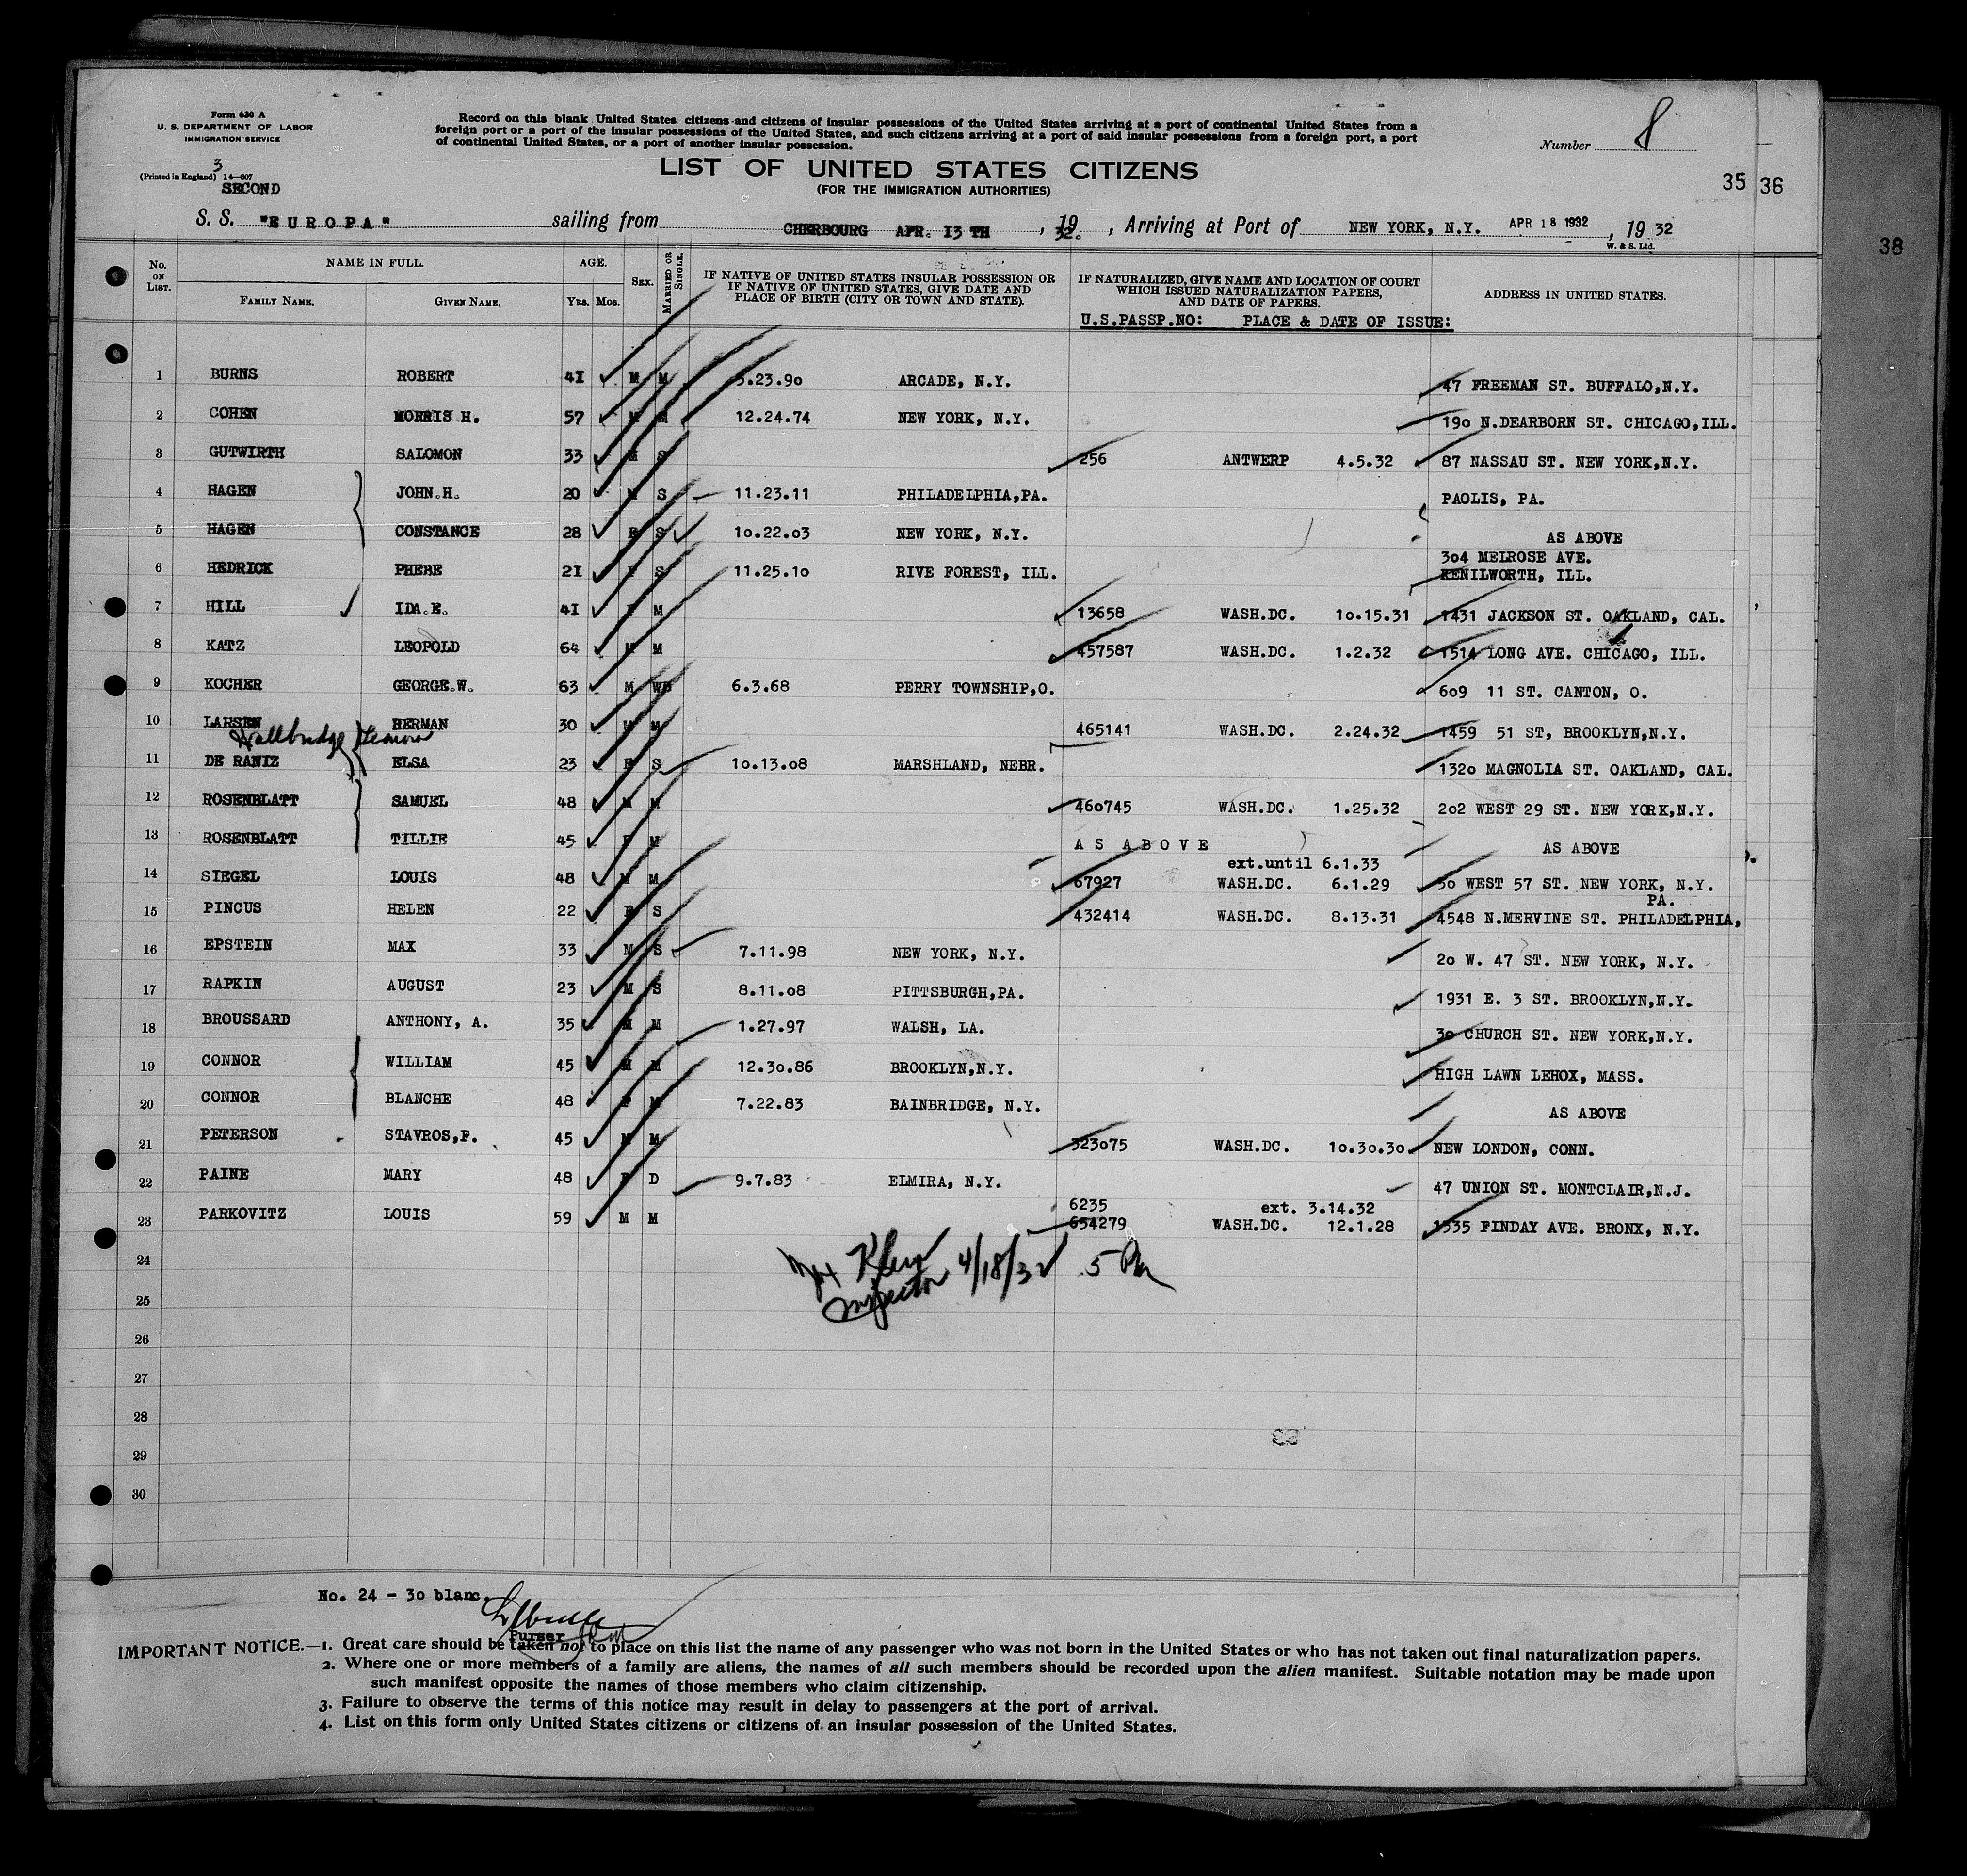 Form 630 A
U. S. DEPARTMENT OF LABOR
IMMIGRATION SERVICE
3
(Printed in England) 14—607
SECOND
Record on this blank United States citizens and citizens of insular possessions of the United States arriving at a port of continental United States from a
foreign port or a port of the insular possessions of the United States, and such citizens arriving at a port of said insular possessions from a foreign port, a port
of continental United States, or a port of another insular possession.
LIST OF UNITED STATES CITIZENS
(FOR THE IMMIGRATION AUTHORITIES)
Number 8
35 36
38
S. S. "EUROPA" sailing from CHERBOURG APR. I3 TH , 19 32. , Arriving at Port of NEW YORK, N.Y. APR 18 1932 , 19 32
W. & S. Ltd.
No. ON LIST. NAME IN FULL. AGE. SEX. MARRIED OR SINGLE. IF NATIVE OF UNITED STATES INSULAR POSSESSION OR IF NATIVE OF UNITED STATES, GIVE DATE AND PLACE OF BIRTH (CITY OR TOWN AND STATE). IF NATURALIZED, GIVE NAME AND LOCATION OF COURT WHICH ISSUED NATURALIZATION PAPERS, AND DATE OF PAPERS. ADDRESS IN UNITED STATES.
FAMILY NAME. GIVEN NAME. YRS. MOS.
U.S.PASSP.NO: PLACE & DATE OF ISSUE:
1 BURNS ROBERT 4I M M 5.23.90 ARCADE, N.Y. 47 FREEMAN ST. BUFFALO,N.Y.
2 COHEN MORRIS H. 57 M M 12.24.74 NEW YORK, N.Y. 190 N.DEARBORN ST. CHICAGO,ILL.
3 GUTWIRTH SALOMON 33 M S 256 ANTWERP 4.5.32 87 NASSAU ST. NEW YORK,N.Y.
4 HAGEN JOHN.H. 20 M S 11.23.11 PHILADELPHIA,PA. PAOLIS, PA.
5 HAGEN CONSTANCE 28 F S 10.22.03 NEW YORK, N.Y. AS ABOVE
304 MELROSE AVE.
6 HEDRICK PHEBE 2I F S 11.25.10 RIVE FOREST, ILL. KENILWORTH, ILL.
7 HILL IDA.E. 4I F M 13658 WASH.DC. 10.15.31 1431 JACKSON ST. OAKLAND, CAL.
8 KATZ LEOPOLD 64 M M 457587 WASH.DC. 1.2.32 1514 LONG AVE. CHICAGO, ILL.
9 KOCHER GEORGE.W. 63 M WD 6.3.68 PERRY TOWNSHIP,O. 609 11 ST. CANTON, O.
10 LARSEN HERMAN 30 M M 465141 WASH.DC. 2.24.32 1459 51 ST, BROOKLYN,N.Y.
Wallbridge
11 DE RANIZ ELSA 23 F S 10.13.08 MARSHLAND, NEBR. 1320 MAGNOLIA ST. OAKLAND, CAL.
12 ROSENBLATT SAMUEL 48 M M 460745 WASH.DC. 1.25.32 202 WEST 29 ST. NEW YORK,N.Y.
13 ROSENBLATT TILLIE 45 F M AS ABOVE AS ABOVE
ext.until 6.1.33
14 SIEGEL LOUIS 48 M M 67927 WASH.DC. 6.1.29 50 WEST 57 ST. NEW YORK, N.Y.
PA.
15 PINCUS HELEN 22 F S 432414 WASH.DC. 8.13.31 4548 N.MERVINE ST. PHILADELPHIA,
16 EPSTEIN MAX 33 M S 7.11.98 NEW YORK, N.Y. 20 W. 47 ST. NEW YORK, N.Y.
17 RAPKIN AUGUST 23 M S 8.11.08 PITTSBURGH,PA. 1931 E. 3 ST. BROOKLYN,N.Y.
18 BROUSSARD ANTHONY, A. 35 M M 1.27.97 WALSH, LA. 30 CHURCH ST. NEW YORK,N.Y.
19 CONNOR WILLIAM 45 M M 12.30.86 BROOKLYN,N.Y. HIGH LAWN LEHOX, MASS.
20 CONNOR BLANCHE 48 F M 7.22.83 BAINBRIDGE, N.Y. AS ABOVE
21 PETERSON STAVROS,P. 45 M M 323075 WASH.DC. 10.30.30 NEW LONDON, CONN.
22 PAINE MARY 48 F D 9.7.83 ELMIRA, N.Y. 47 UNION ST. MONTCLAIR,N.J.
6235 ext. 3.14.32
23 PARKOVITZ LOUIS 59 M M 654279 WASH.DC. 12.1.28 1535 FINDAY AVE. BRONX, N.Y.
24
Inspector 4/18/32 5 Pm
25
26
27
28
23
29
30
No. 24 - 30 blanc.
Purser
IMPORTANT NOTICE.—1. Great care should be taken not to place on this list the name of any passenger who was not born in the United States or who has not taken out final naturalization papers.
2. Where one or more members of a family are aliens, the names of all such members should be recorded upon the alien manifest. Suitable notation may be made upon
such manifest opposite the names of those members who claim citizenship.
3. Failure to observe the terms of this notice may result in delay to passengers at the port of arrival.
4. List on this form only United States citizens or citizens of an insular possession of the United States.